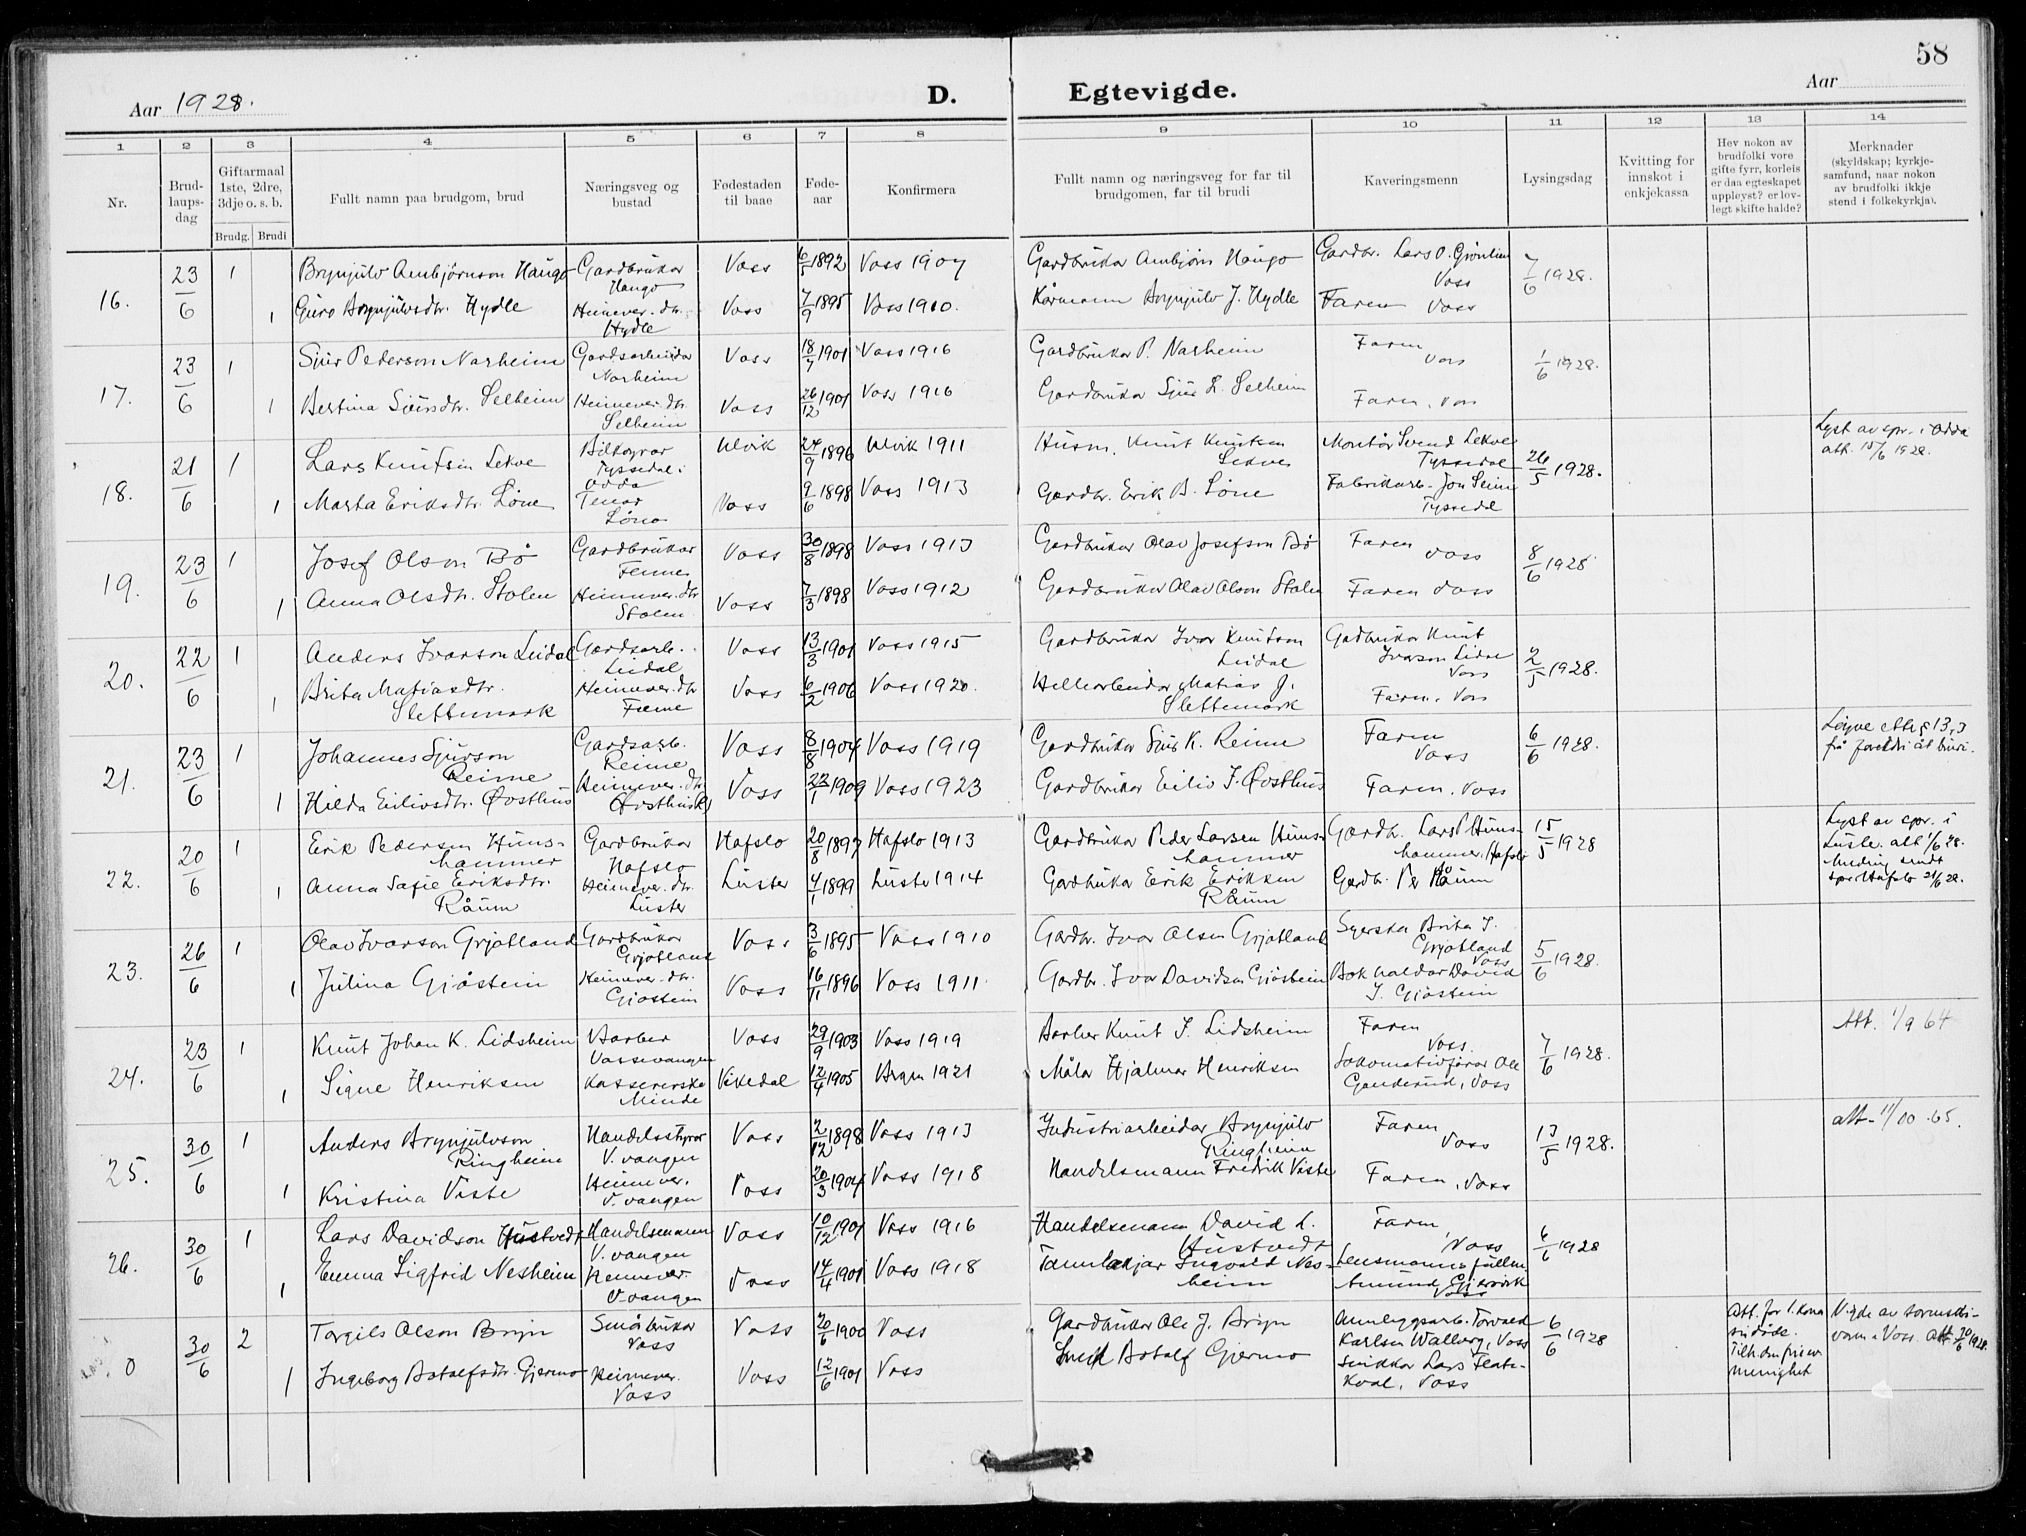 58
Aar 1928.
D. Egtevigde.
Aar
1 2 3 4 5 6 7 8 9 10 11 12 13 14
Nr.
Brud-
laups-
dag
Giftarmaal
1ste, 2dre,
3dje o. s. b.
Brudg. Brudi
Fullt namn paa brudgom, brud
Næringsveg og
bustad
Fødestaden
til baae
Føde-
aar
Konfirmera
Fullt namn og næringsveg for far til
brudgomen, far til brudi
Kaveringsmenn
Lysingsdag
Kvitting for
innskot i
enkjekassa
Hev nokon av
brudfolki vore
gifte fyrr, korleis
er daa egteskapet
uppleyst? er lov-
legt skifte halde?
Merknader
(skyldskap; kyrkje-
samfund, naar nokon
av brudfolki ikkje
stend i folkekyrkja).
16. 23/6 1 Brynjulv Ambjørnson Haugo Gardbrukar Voss 6/5 1892 Voss 1907 Gardbrukar Ambjørn Haugo Gardbr. Lars O. Grønlien 7/6 1928.
Haugo Voss
1 Guro Brynjulvsdtr. Hydle Heimever. dtr. Voss 7/9 1895 Voss 1910. Kårmann Brynjulv J. Hydle Faren Voss
Hydle
17. 23/6 1 Sjur Pederson Narheim Gardsarbeidar Voss 18/7 1901 Voss 1916 Gardbrukar P. Narheim Faren 1/6 1928.
Narheim Voss
1 Bertina Sjursdtr. Selheim Heimever. dtr. Voss 26/12 1901 Voss 1916 Gardbrukar Sjur L. Selheim Faren, Voss
Selheim
18. 21/6 1 Lars Knutsen Lekve Bilkøyrar Ulvik 24/9 1896 Ulvik 1911 Husm. Knut Knutsen Montør Svend Lekve 26/5 1928. Lyst av spr. i Odda
Tyssedal i Lekve Tyssedal att. 15/6 1928.
Odda
1 Marta Eriksdtr. Løne Tenar Voss 9/6 1898 Voss 1913 Gardbr. Erik B. Løne Fabrikarb. Jon Seim
Løno Tyssedal
19. 23/6 1 Josef Olson Bø Gardbrukar Voss 30/8 1898 Voss 1913 Gardbrukar Olav Josefson Bø Faren Voss 8/6 1928
Fenne
1 Anna Olsdtr. Stolen Heimever. dtr Voss 7/3 1898 Voss 1912 Gardbrukar Olav Olson Stolen Faren Voss
Stolen
20. 22/6 1 Anders Ivarson Leidal Gardsarb. Voss 13/3 1901 Voss 1915 Gardbrukar Ivar Knutson Gadbrukar Knut 2/5 1928.
Leidal Leidal Ivarson Lidal
Voss
1 Brita Matiasdtr. Heimever. dtr Voss 6/2 1906 Voss 1920. Matias J. Faren, Voss
Slettemark Slettemark
21. 23/6 1 Johannes Sjurson Gardsarb. Voss 8/8 1904 Voss 1919 Gardbrukar Sjur K. Reime Faren 6/6 1928.
Reime Reime Voss
1 Hilda Eilivsdtr. Øvsthus Heimever. dtr Voss 22/1 1909 Voss 1923 Gardbrukar Eiliv I. Øvsthus Faren, Voss
22. 20/6 1 Erik Pedersen Huns- Gardbrukar Hafslo 20/8 1897 Hafslo 1913 Gardbrukar Peder Larsen Huns- Gardbr. Lars P. Huns- 15/5 1928 Lyst av spr. i
hammer Hafslo hammer hammer, Hafslo Luster. att 1/6 28.
1 Anna Sofie Eriksdtr. Heimever. dtr. Luster 4/1 1899 Luster 1914 Gardbrukar Erik Eriksen Gardbr. Per Råum
Råum Luster Råum
23. 26/6 1 Olav Ivarson Grjotland Gardbrukar Voss 3/6 1895 Voss 1910 Gardbr. Ivar Olsen Grjotland Syerska Brita I. 5/6 1928.
Grjotland Grjotland
Voss
1 Julina Gjøstein Heimever. dtr. Voss 16/11 1896 Voss 1911. Gardbr. Ivar Davidsen Gjøstein Bokhaldar David
Gjøstein I. Gjøstein
24. 23/6 1 Knut Johan K. Lidsheim Barber Voss 29/9 1903 Voss 1919 Barber Knut J. Lidsheim Faren 7/6 1928. Att. 1/9 64
Vossevangen Voss.
1 Signe Henriksen Kassererske Vikedal 12/4 1905 Bergen 1921 Målar Hjalmar Henriksen Lokomotivførar Ole
Minde Ganderud, Voss
25. 30/6 1 Anders Brynjulvson Handelsstyrar Voss 2/12 1898 Voss 1913 Industriarbeidar Brynjulv Faren 13/5 1928. att. 11/10 -65.
Ringheim V. vangen Ringheim Voss
1 Kristina Viste Heimever. Voss 20/3 1904 Voss 1918 Handelsmann Fredrik Viste Faren, Voss
V. vangen
26. 30/6 1 Lars Davidson Hustvedt Handelsmann Voss 10/12 1901 Voss 1916 Handelsmann David L. Faren 6/6 1928
V. vangen Hustvedt Voss
1 Emma Sigfrid Nesheim Heimever. Voss 14/4 1901 Voss 1918 Ingvald Nes- Lensmannsfullm.
V. vangen heim Amund Gjersvik
Voss
0 30/6 2 Torgils Olson Bryn Småbrukar Voss 20/6 1900 Voss Gardbrukar Ole J. Bryn Anleggsarb. Torvald 6/6 1928 Att. for 1. kona Vigde av sorenskri-
Voss Karlsen Walberg, Voss varen i Voss. Att 30/6 1928.
1 Ingeborg Botolfsdtr. Gjermo Heimever. Voss 12/6 1901 Voss Snikk. Botolf Gjermo Snikkar Lars Flate-
Voss kval, Voss menighet